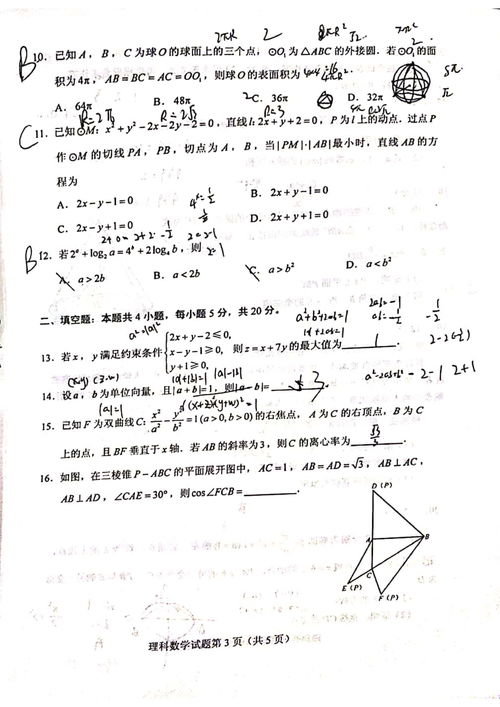 B 10. 已知 A，B，C 为球 O 的球面上的三个点，⊙O₁ 为△ABC 的外接圆．若⊙O₁ 的面
积为 4π，AB = BC = AC = OO₁，则球 O 的表面积为
A. 64π B. 48π C. 36π D. 32π
R=2√3 R=3
C 11. 已知⊙M：x² + y² − 2x − 2y − 2 = 0，直线 l：2x + y + 2 = 0，P 为 l 上的动点．过点 P
作⊙M 的切线 PA，PB，切点为 A，B，当 |PM|·|AB| 最小时，直线 AB 的方
程为
A. 2x − y − 1 = 0 B. 2x + y − 1 = 0
C. 2x − y + 1 = 0 D. 2x + y + 1 = 0
B 12. 若 2ᵃ + log₂ a = 4ᵇ + 2log₄ b，则
A. a > 2b B. a < 2b C. a > b² D. a < b²
二、填空题：本题共 4 小题，每小题 5 分，共 20 分。
a²=|a|²
13. 若 x，y 满足约束条件 { 2x + y − 2 ≤ 0, x − y − 1 ≥ 0, y + 1 ≥ 0, 则 z = x + 7y 的最大值为 1 ．
14. 设 a，b 为单位向量，且 |a + b| = 1，则 |a − b| = √3
|a|=1
15. 已知 F 为双曲线 C：x²/a² − y²/b² = 1 (a > 0, b > 0) 的右焦点，A 为 C 的右顶点，B 为 C
上的点，且 BF 垂直于 x 轴．若 AB 的斜率为 3，则 C 的离心率为
16. 如图，在三棱锥 P − ABC 的平面展开图中，AC = 1，AB = AD = √3，AB ⊥ AC，
AB ⊥ AD，∠CAE = 30°，则 cos∠FCB = ．
D (P)
A
B
C
E (P)
F (P)
理科数学试题第 3 页（共 5 页）